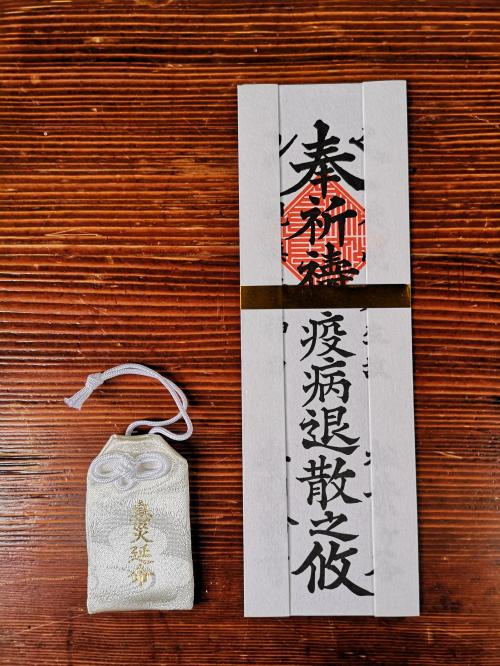 奉祈禱疫病退散之攸
息災延命